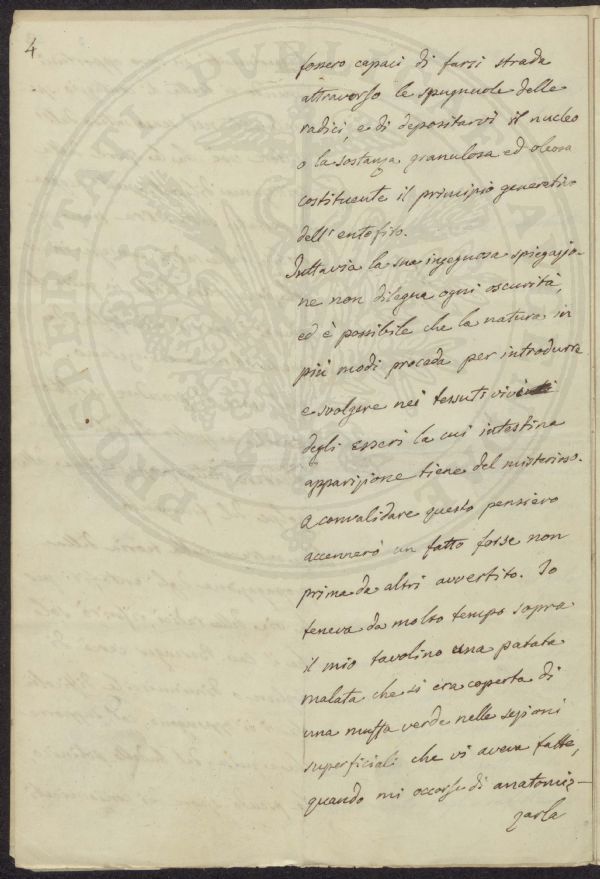 4
fossero capaci di farsi strada
attraverso le spugnuole delle
radici, e di depositarvi il nucleo
o la sostanza granulosa ed oleosa
costituente il principio generativo
dell'entofito.
Tuttavia la sua ingegnosa spiegazio-
ne non dilegua ogni oscurità,
ed è possibile che la natura in
più modi proceda per introdurre
e svolgere nei tessuti vivi
degli esseri la cui intestina
apparizione tiene del misterioso.
A convalidare questo pensiero
accennerò un fatto forse non
prima da altri avvertito. Io
teneva da molto tempo sopra
il mio tavolino una patata
malata che si era coperta di
una muffa verde nelle sezioni
superficiali che vi aveva fatte,
quando mi occorse di anatomiz-
zarla